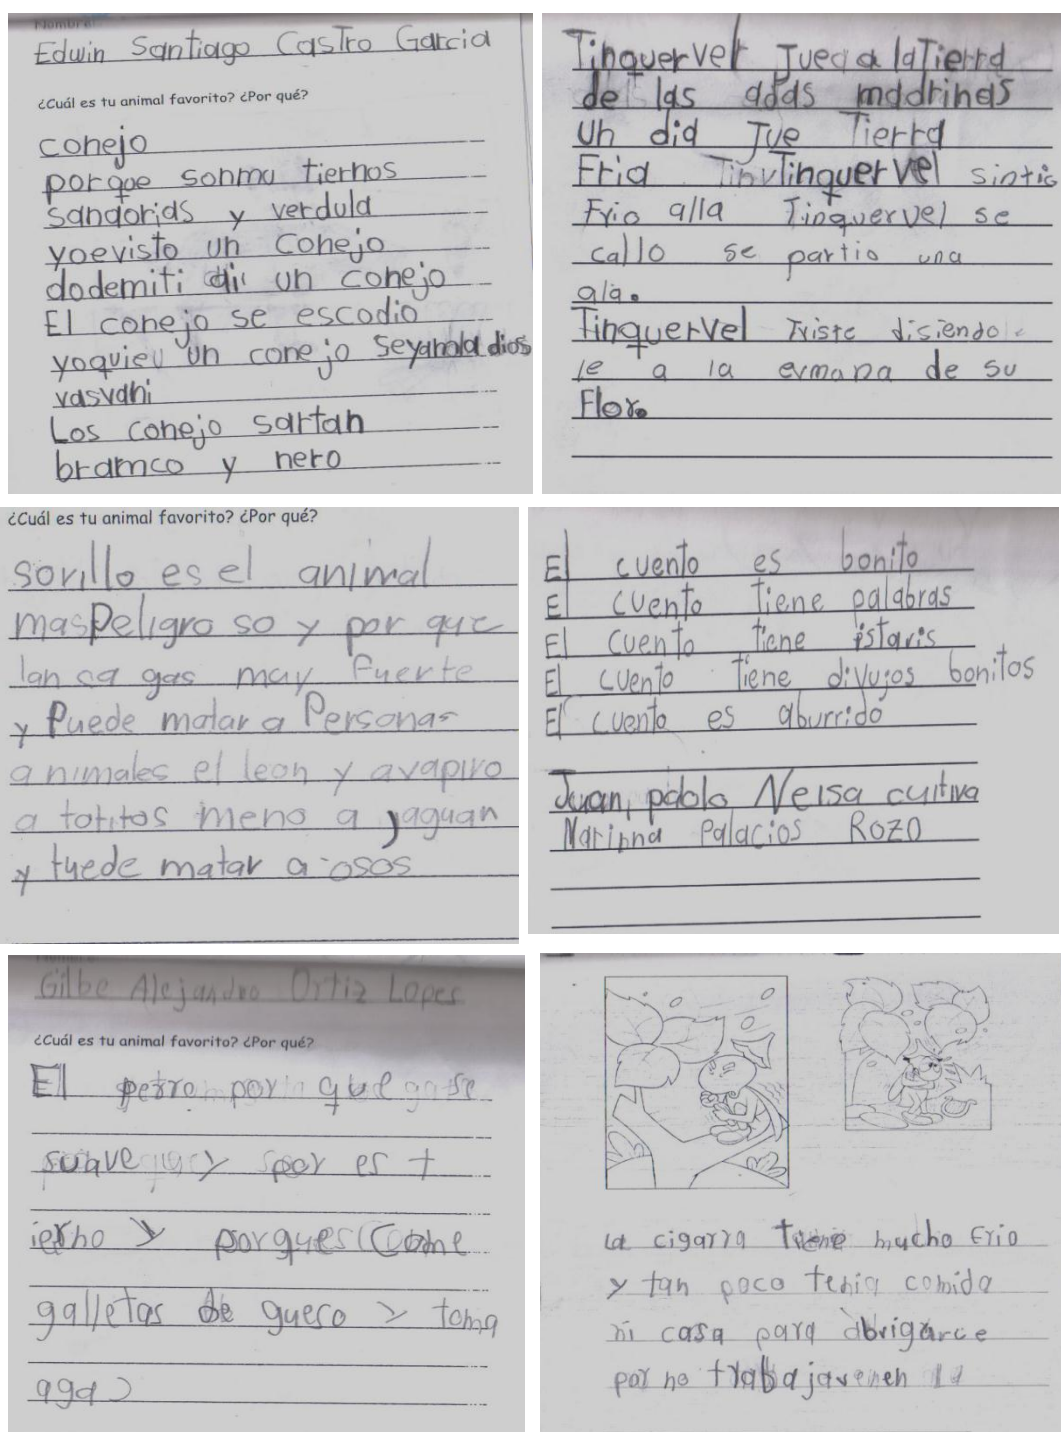 Nombre:
Edwin Santiago Castro Garcia
¿Cuál es tu animal favorito? ¿Por qué?
conejo
porque sonmu tiernos
sanaorias y verdula
yoevisto un conejo
dodemiti un conejo
El conejo se escodio
yoquieu un conejo
vasvahi
Los conejo sartan
bramco y nero
Tinquervel Juea a laTierra
de las adas madrinas
un dia Jue Tierra
Fria Tinquervel sintio
Frio alla Tinquervel se
callo se partio una
ala.
Tinquervel Triste disiendo
le a la ermana de su
Flor.
¿Cuál es tu animal favorito? ¿Por qué?
sorillo es el animal
masPeligro so y por que
lan sa gas muy Fuerte
y Puede matar a Personas
animales el leon y avapiro
a totitos meno a jaguan
y tuede matar a osos
El cuento es bonito
El cuento Tiene palabras
El cuento tiene istaris
El cuento Tiene divujos bonitos
El cuento es aburrido
Juan, pablo Neisa cuitiva
Marinna Palacios Rozo
Gilbe Alejandro Ortiz Lopes
¿Cuál es tu animal favorito? ¿Por qué?
El perro por que se
suave y por es t
ierno y porques Come
galletas de gueso y toma
aga
La cigarra tiene mucho Frio
y tan poco tenia comida
ni casa para abrigarce
por no trabajaven en